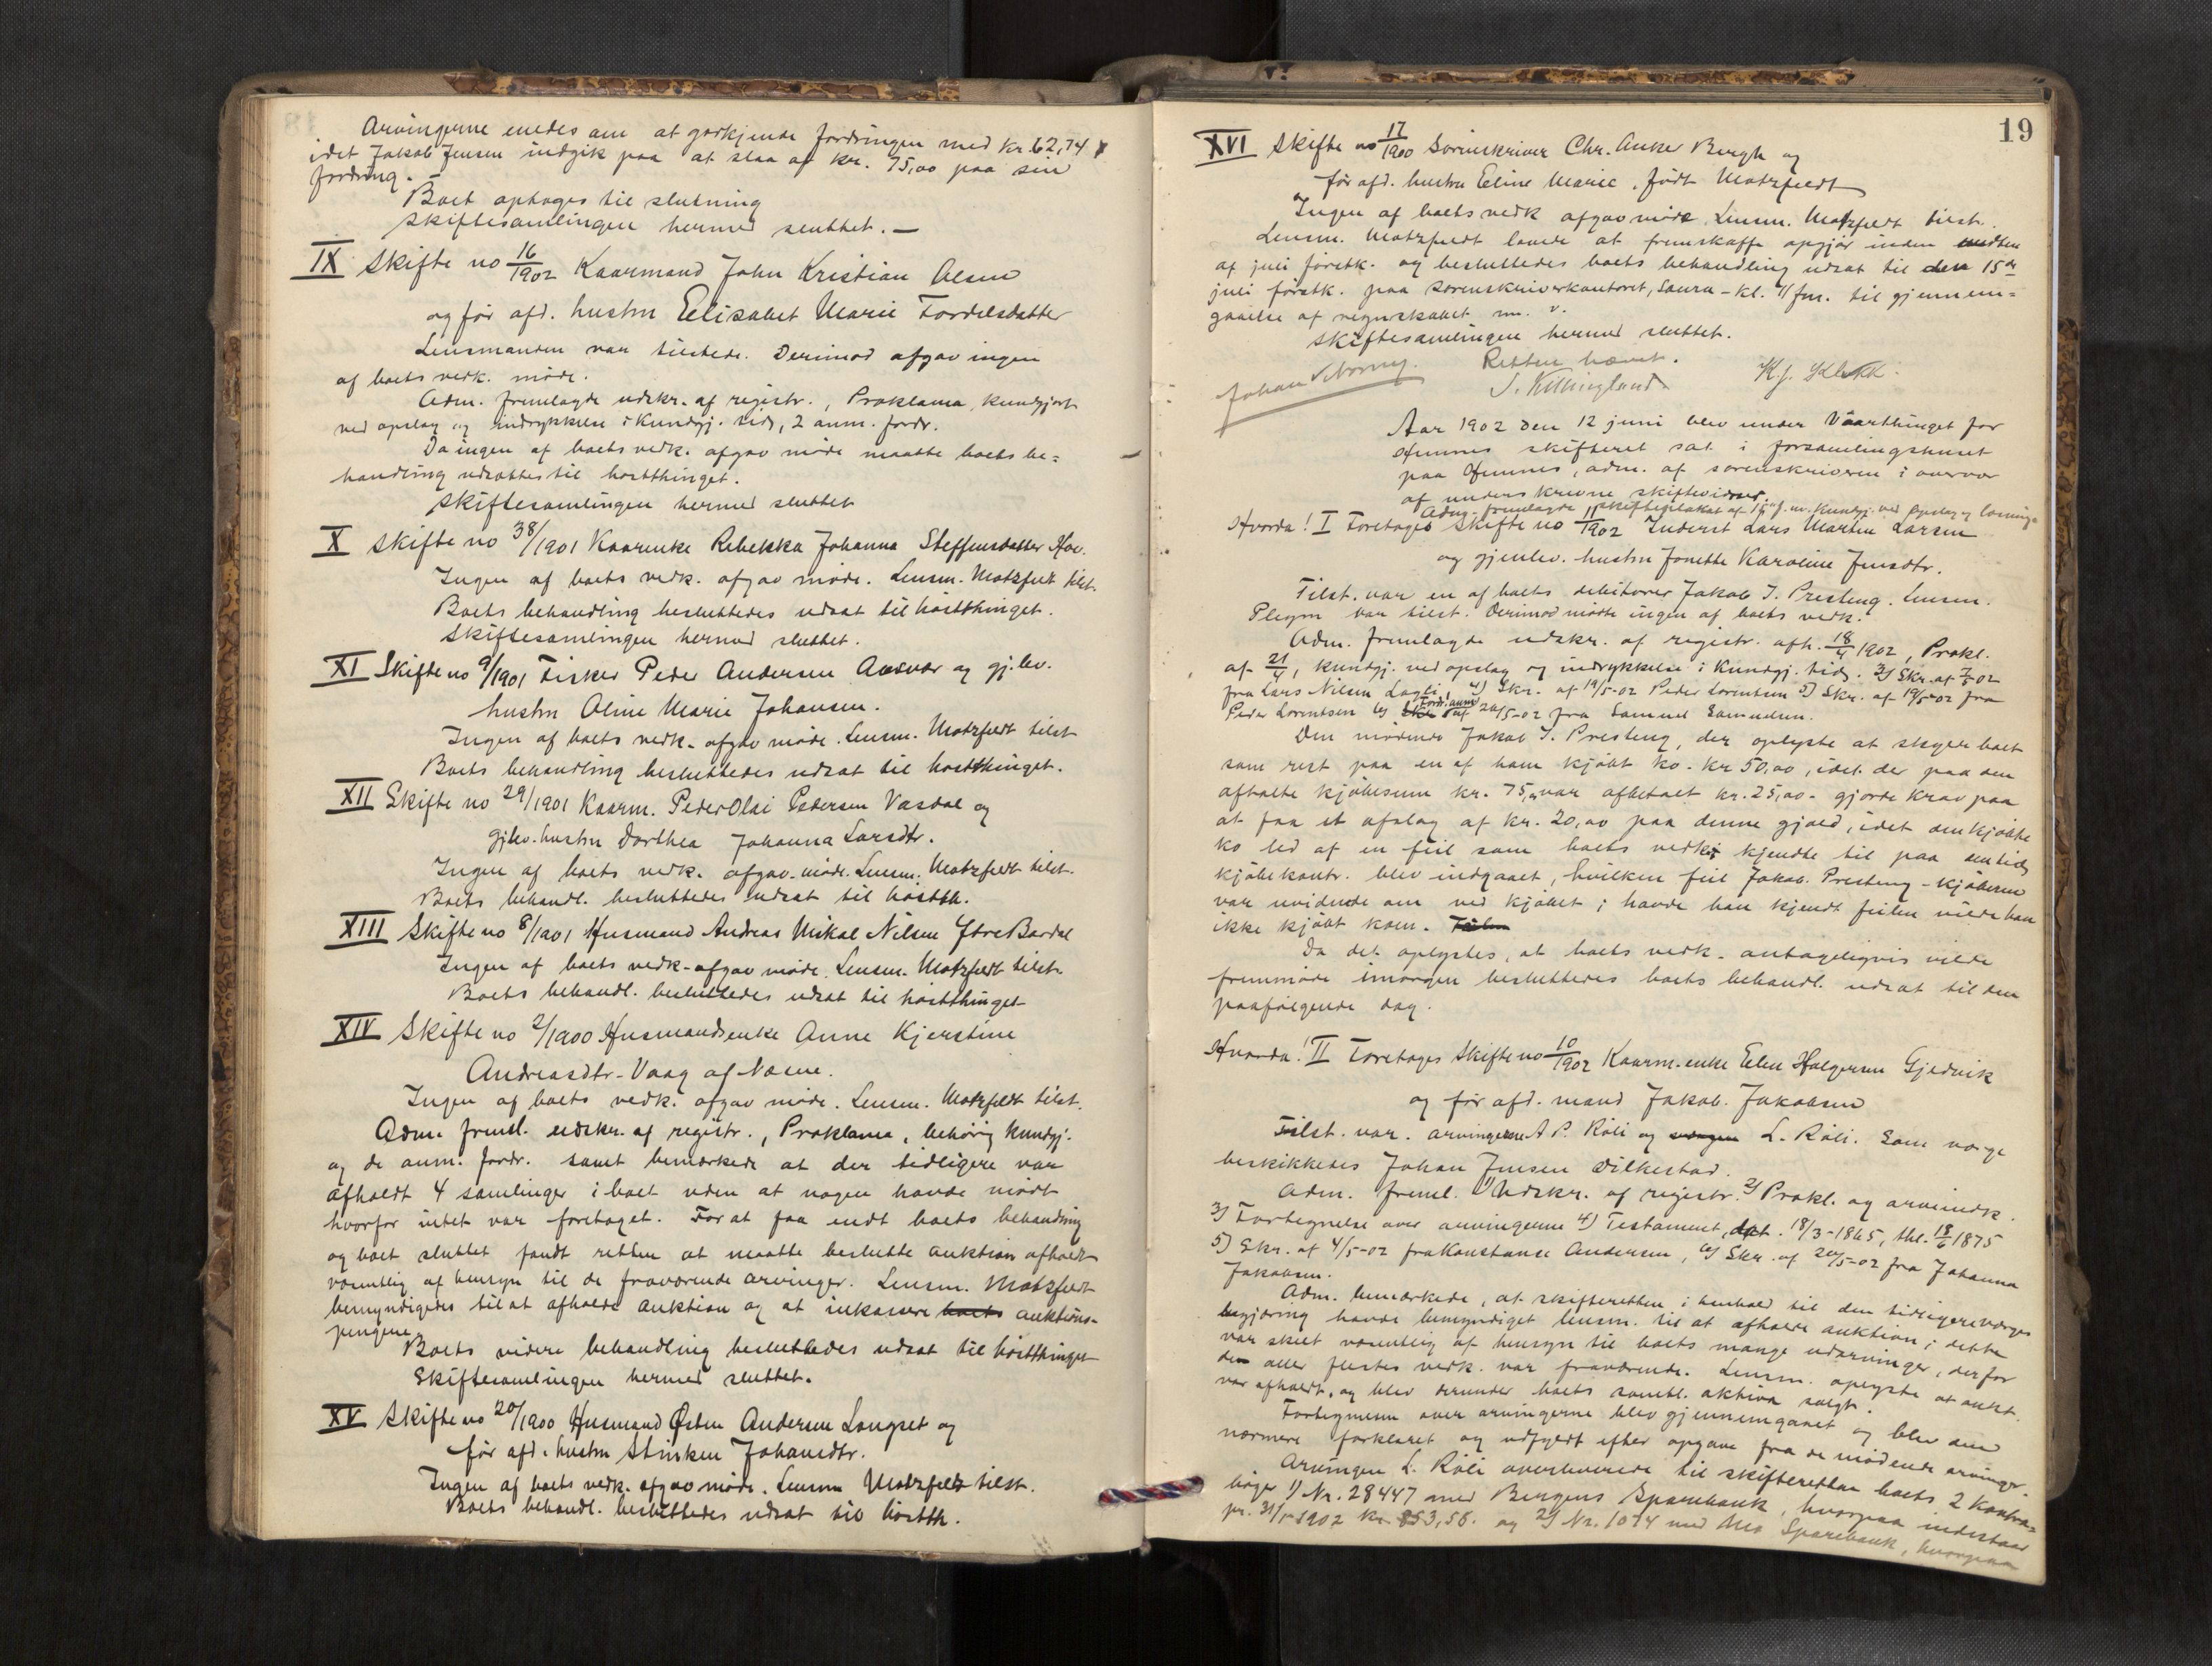 Arvingerne enedes om at godkjende fordringen med kr. 62,74
idet Jakob Jensen indgik paa at slaa af kr. 75,00 paa sin
fordring.
Boet optoges til slutning
Skiftesamlingen hermed sluttet. —
IX Skifte no 16/1902 Kaarmand John Kristian Olsen
og før afd. hustru Elisabet Marie Tordelsdatter
Lensmanden var tilstede. Derimod afgav ingen
af boets vedk. møde.
Adm. fremlagde udskr. af registr., Proklama, kundgjort
ved opslag og indrykkelse i Kundgj. tid., 2 anm. fordr.
Da ingen af boets vedk. afgav møde maatte boets be=
handling udsættes til høstthinget.
Skiftesamlingen hermed sluttet
X Skifte no 38/1901 Kaarenke Rebekka Johanna Steffensdatter Hov.
Ingen af boets vedk. afgav møde. Lensm. Motzfeldt tilst.
Boets behandling besluttedes udsat til høstthinget.
Skiftesamlingen hermed sluttet.
XI Skifte no 9/1901 Fisker Peder Andersen Aasvær og gj.lev.
hustru Oline Marie Johansen.
Ingen af boets vedk. afgav møde. Lensm. Motzfeldt tilst
Boets behandling besluttedes udsat til høstthinget.
XII Skifte no 29/1901 Kaarm. Peder Olai Pedersen Vasdal og
gjlev. hustru Dorthea Johanna Larsdtr.
Ingen af boets vedk. afgav møde. Lensm. Motzfeldt tilst.
Boets behandl. besluttedes udsat til høstth.
XIII Skifte no 8/1901 Husmand Andreas Mikal Nilsen Ytre Bardal
Ingen af boets vedk. afgav møde. Lensm. Motzfeldt tilst.
Boets behandl. besluttedes udsat til høstthinget
XIV Skifte no 2/1900 Husmandsenke Anne Kjerstine
Andreasdtr. Vaag af Næsne.
Ingen af boets vedk. afgav møde. Lensm. Motzfeldt tilst.
Adm. freml. udskr. af registr., Proklama, behørig kundgj.
og de anm. fordr. samt bemærkede at der tidligere var
afholdt 4 samlinger i boet uden at nogen havde mødt
hvorfor intet var foretaget. For at faa endt boets behandling
og boet sluttet fandt retten at maatte beslutte auktion afholdt
væsentlig af hensyn til de fraværende arvinger. Lensm. Motzfeldt
bemyndigedes til at afholde auktion og at inkassere boets auktions-
pengene.
Boets videre behandling besluttedes udsat til høstthinget
Skiftesamlingen hermed sluttet.
XV Skifte no 20/1900 Husmand Østen Andersen Langset og
før afd. hustru Stinken Johansdtr.
Ingen af boets vedk. afgav møde. Lensm Motzfeldt tilst.
Boets behandl. besluttedes udsat til høstth.
19
XVI Skifte no 17/1900 Sorenskriver Chr. Anker Bergh og
før afd. hustru Eline Marie, født Motzfeldt
Ingen af boets vedk afgav møde Lensm. Motzfeldt tilst.
Lensm. Motzfeldt lovede at fremskaffe opgjør inden midten
af juli førstk. og besluttedes boets behandling udsat til den 15de
juli førstk. paa sorenskriverkontoret, Saura - kl. 11 fm. til gjennem=
gaaelse af regnskabet m. v.
Skiftesamlingen hermed sluttet.
Retten hævet.
Aar 1902 den 12 juni blev under Vaarthinget for
Hemnes skifteret sat i forsamlingshuset
paa Hemnes, adm. af sorenskriveren i overvær
af underskrevne skiftevidner.
Adm. fremlagde skifteplakat af
Hvorda! I Foretoges Skifte no 11/1902 Inderst Lars Martin Larsen
og gjenlev. hustru Jonette Karoline Jensdtr.
Tilst. var en af boets debitorer Jakob I. Presteng. Lensm.
Plegm var tilst. Derimod mødte ingen af boets vedk.
Adm. fremlagde udskr. af registr. afh. 18/4 1902, Prokl.
af 21/4, kundgj. ved opslag og indrykkelse i Kundgj. tid. 3) Skr. af 7/5 02
fra Lars Nilsen 4) Skr. af 19/5-02 Peder Lorentsen 5) Skr. af 19/5-02 fra
Peder Lorentsen 6) Fordr. anm af 20/5-02 fra Samuel Samuelsen.
Den mødende Jakob I. Presteng, der oplyste at skylde boet
som rest paa en af ham kjøbt ko. kr 50,00, idet der paa den
aftalte kjøbesum kr. 75,00 var afbetalt kr. 25,00. gjorde krav paa
at faa et afslag af kr. 20,00 paa denne gjæld, idet den kjøbte
ko led af en feil som boets vedk. kjendte til paa den tid
kjøbekontr. blev indgaaet, hvilken feil Jakob Presteng - kjøberen
var uvidende om ved kjøbet; havde han kjendt feilen vilde han
ikke kjøbt koen.
Da det oplystes, at boets vedk. antageligvis vilde
fremmøde imorgen besluttedes boets behandl. udsat til den
paafølgende dag.
Hvorda! II Foretoges Skifte no 10/1902 Kaarm.enke Elen Holgersen Gjedvik
og før afd. mand Jakob Jakobsen
Tilst. var. arvingerne A P. Røli og L. Røli. Som værge
beskikkedes Johan Jensen Dilkestad.
Adm. freml. 1) Udskr. af registr. 2) Prokl. og arveindk.
3) Fortegnelse over arvingerne 4) Testament, dat. 18/3-1865, thl. 18/6 1875
5) Skr. af 4/5-02 fra Konstanse Andersen, 6) Skr. af 20/5-02 fra Johanna
Jakobsen.
Adm. bemærkede, at skifteretten i henhold til den tidligere værges
begjæring havde bemyndiget lensm. til at afholde auktion; dette
var skeet væsentlig af hensyn til boets mange udarvinger, derfor
de aller flestes vedk. var fraværende. Lensm. oplyste at aukt.
var afholdt, og blev derunder boets samtl. aktiva solgt.
Fortegnelsen over arvingerne blev gjennemgaaet og blev den
nærmere forklaret og udfyldt efter opgave fra de mødende arvinger.
Arvingen L. Røli overleverede til skifteretten boets 2 kontra-
bøger 1) Nr. 28447 med Bergens Sparebank, hvorpaa indestaar
pr. 31/1 1902 kr. 853,56. og 2) Nr. 1074 med Mo Sparebank, hvorpaa